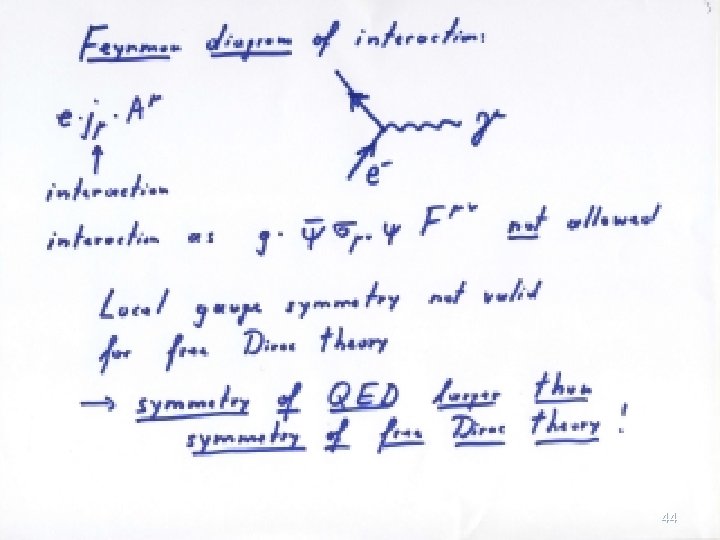 Feynman diagram of interaction:
e · j_μ · A^μ
γ
e⁻
↑
interaction
interaction as g · ψ̄ σ_μν ψ F^μν not allowed
Local gauge symmetry not valid
for free Dirac theory
→ symmetry of QED larger than
symmetry of free Dirac theory!
44